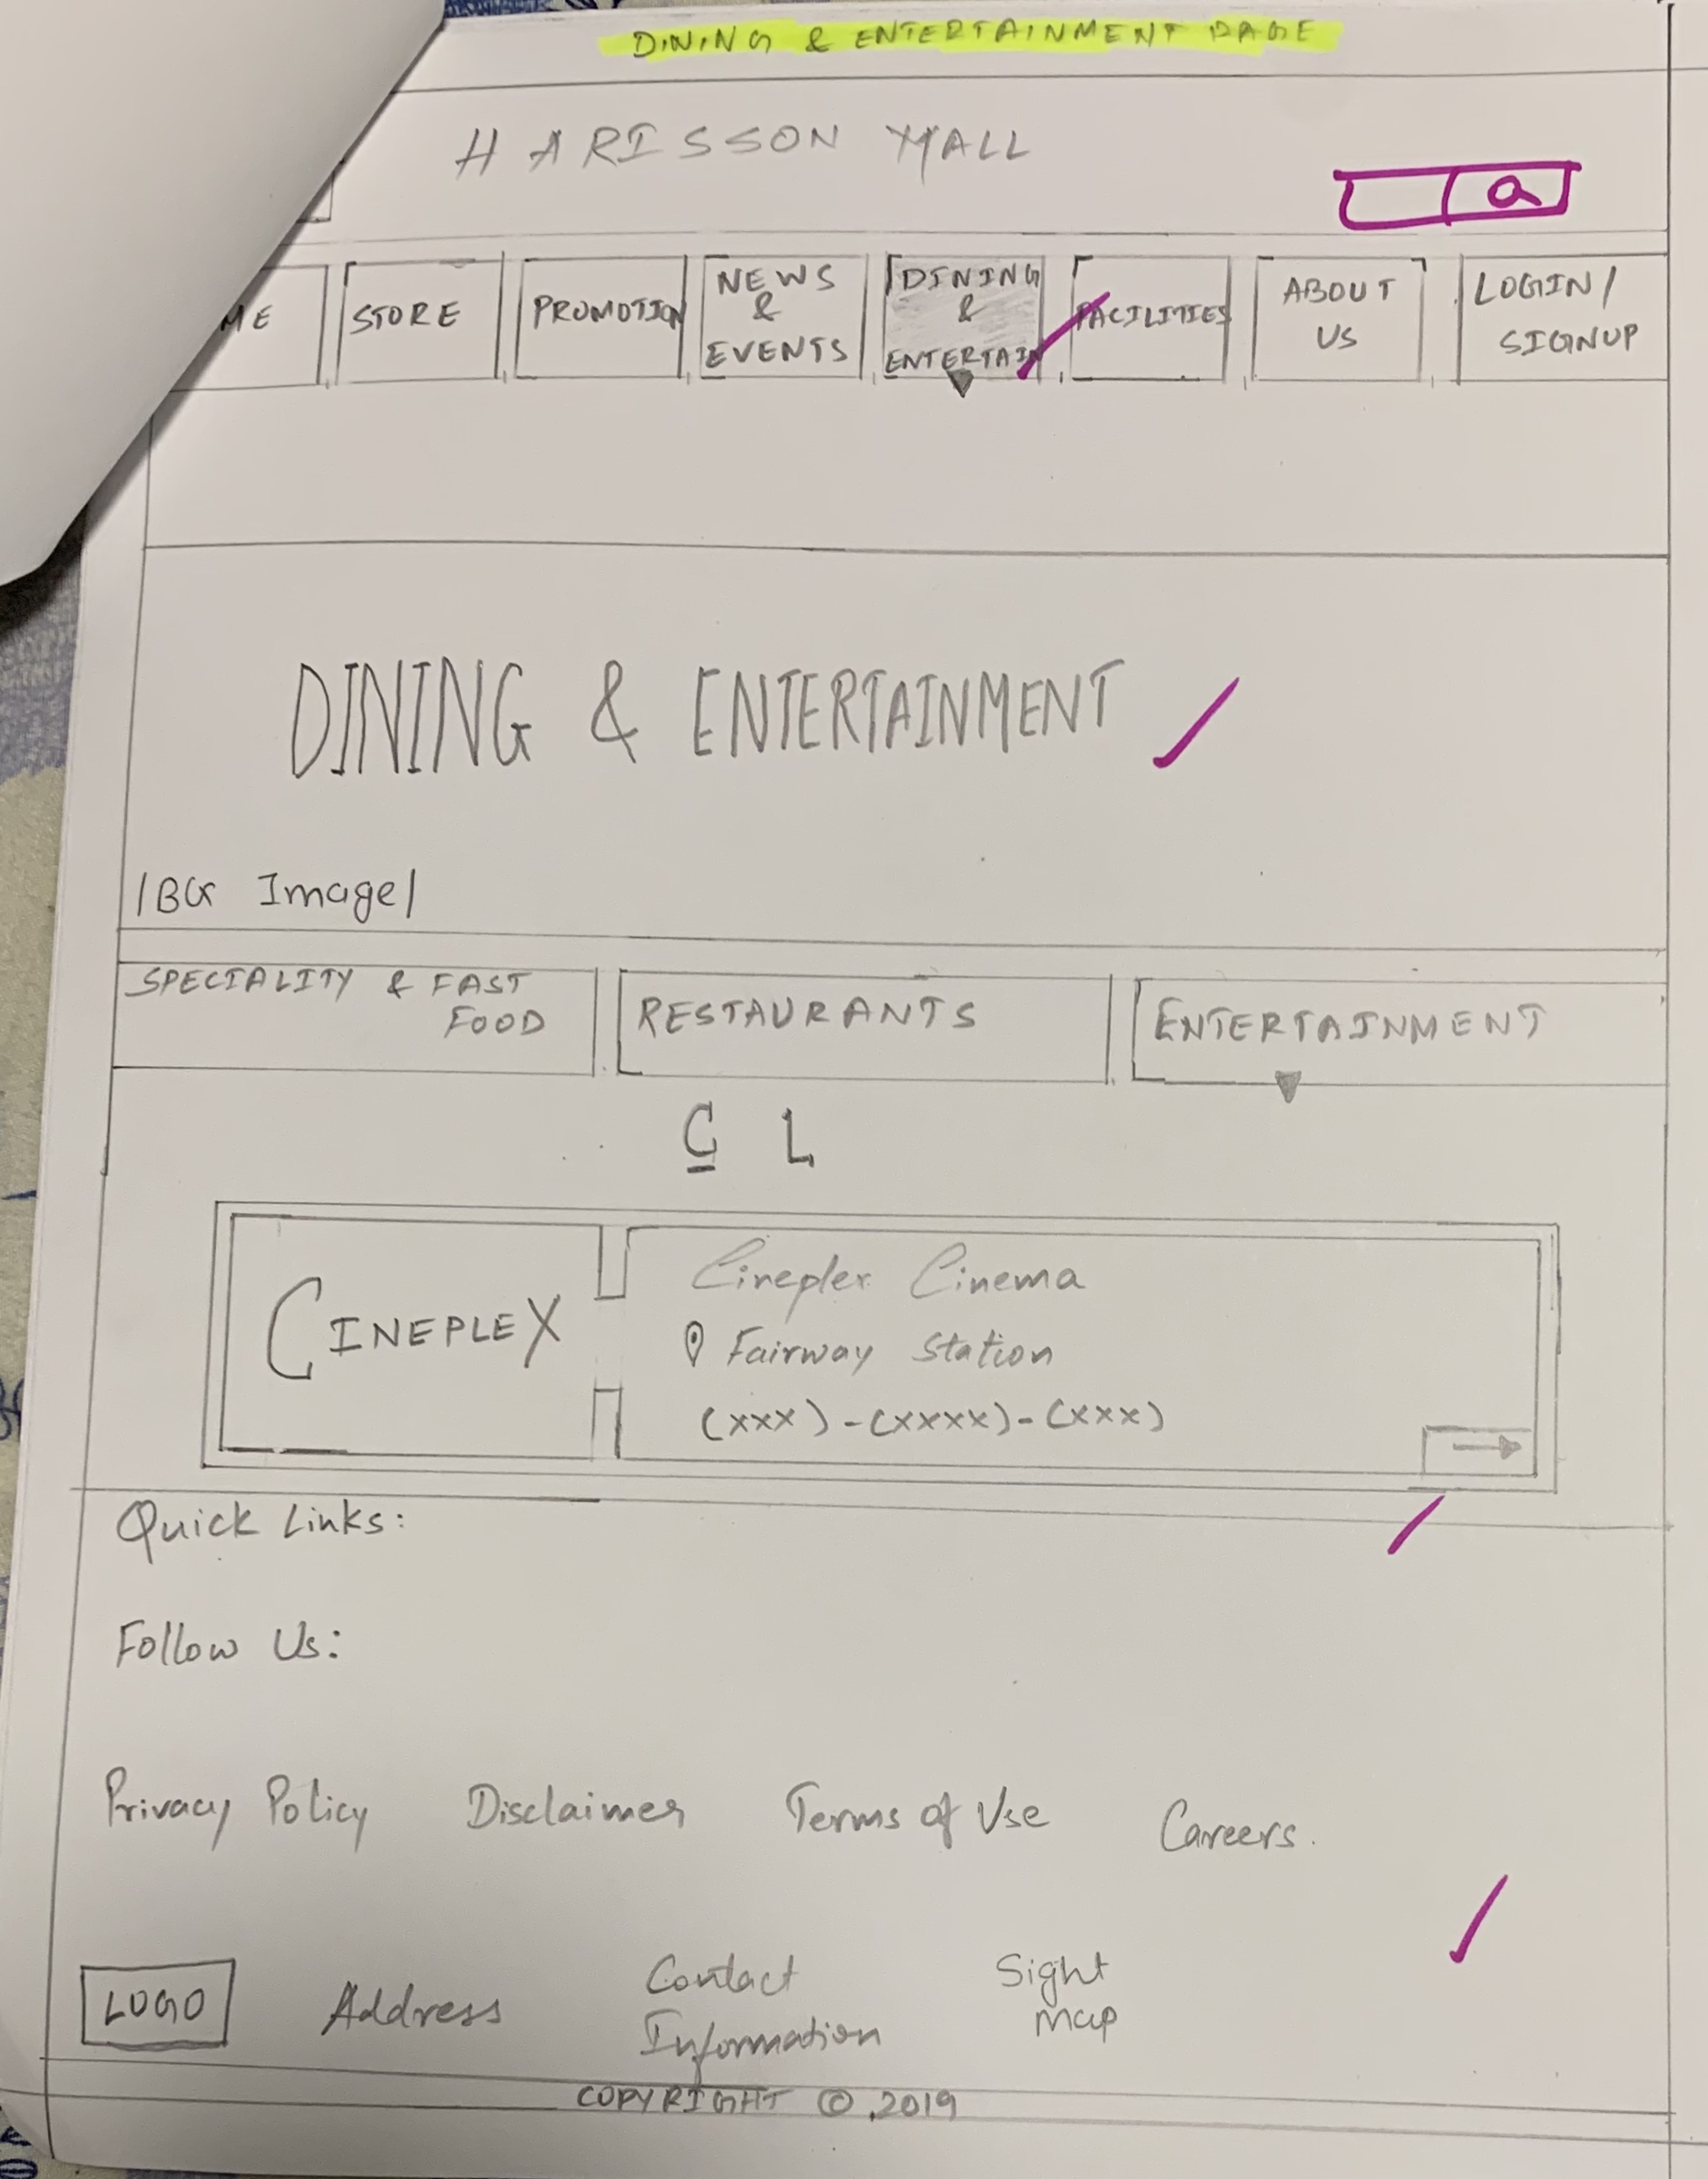 DINING & ENTERTAINMENT PAGE
HARISSON MALL
ME
STORE
PROMOTION
NEWS
&
EVENTS
DINING
&
ENTERTAIN
FACILITIES
ABOUT
US
LOGIN/
SIGNUP
DINING & ENTERTAINMENT
/BG Image/
SPECIALITY & FAST
FOOD
RESTAURANTS
ENTERTAINMENT
C L
CINEPLEX
Cineplex Cinema
Fairway Station
(xxx)-(xxxx)-(xxx)
Quick Links:
Follow Us:
Privacy Policy Disclaimer Terms of Use Careers.
LOGO
Address
Contact
Information
Sight
Map
COPYRIGHT © 2019